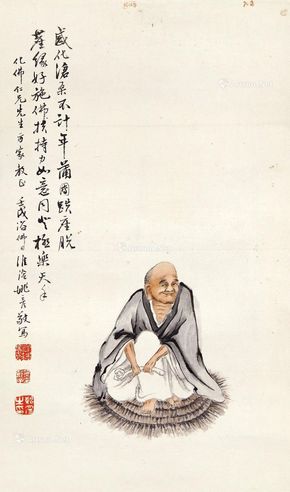 感化滄桑不計年蒲團趺座脫
塵緣好施佛扶持力如意同登極樂天
化佛仁兄先生方家教正 壬戌浴佛日淮陰姚 敬寫